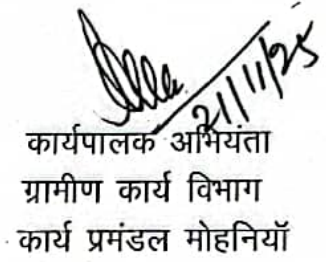 21/11/25
कार्यपालक अभियंता
ग्रामीण कार्य विभाग
कार्य प्रमंडल मोहनियॉ